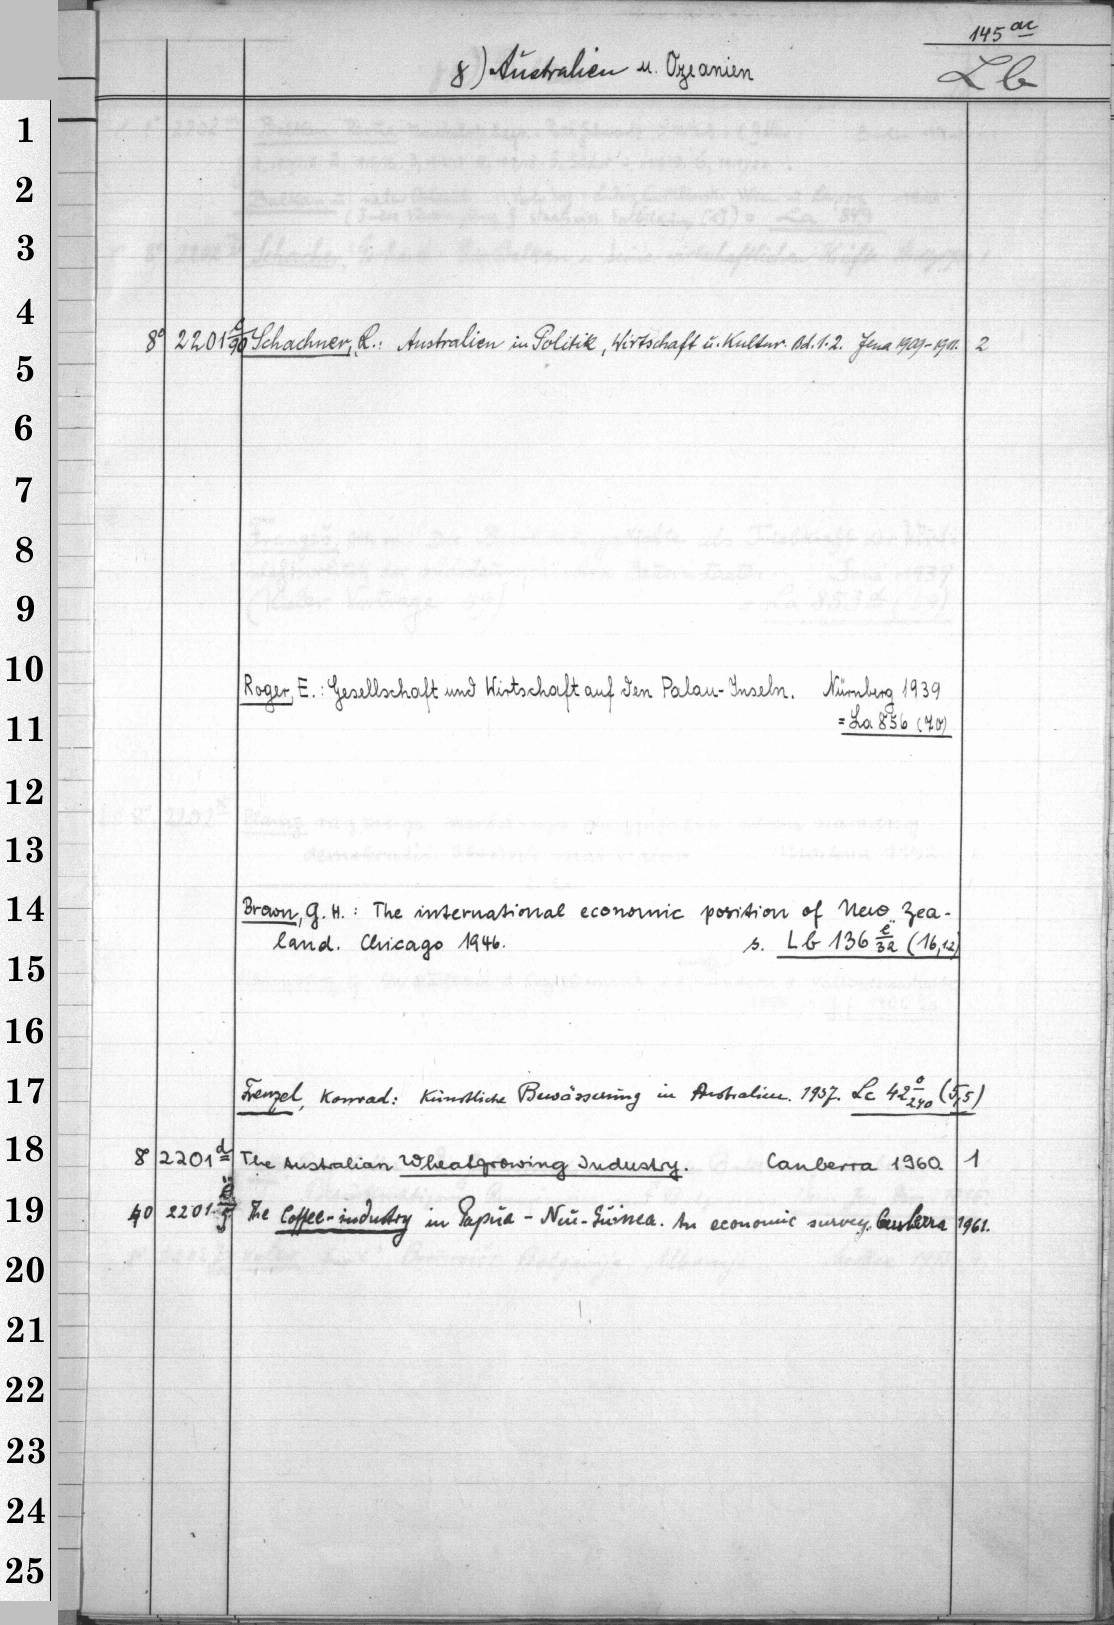 145 ac
8) Australien u. Ozeanien
Lb
1
2
3
4
8° 2201 c/90 Schachner, R.: Australien in Politik, Wirtschaft u. Kultur. Bd. 1.2. Jena 1909-1911. 2
5
6
7
8
9
10
Roger, E.: Gesellschaft und Wirtschaft auf den Palau-Inseln. Nürnberg 1939
= La 856 (70)
11
12
13
14
Brown, G. H.: The international economic position of New Zea-
land. Chicago 1946. s. Lb 136 e/32 (16,12)
15
16
17
Frenzel, Konrad: Künstliche Bewässerung in Australien. 1957. Lc 42 o/240 (5,5)
18
8° 2201 d The Australian Wheatgrowing Industry. Canberra 1960. 1
19
40 2201 ë/5 The Coffee-industry in Papua-Neu-Guinea. An economic survey. Canberra 1961.
20
21
22
23
24
25